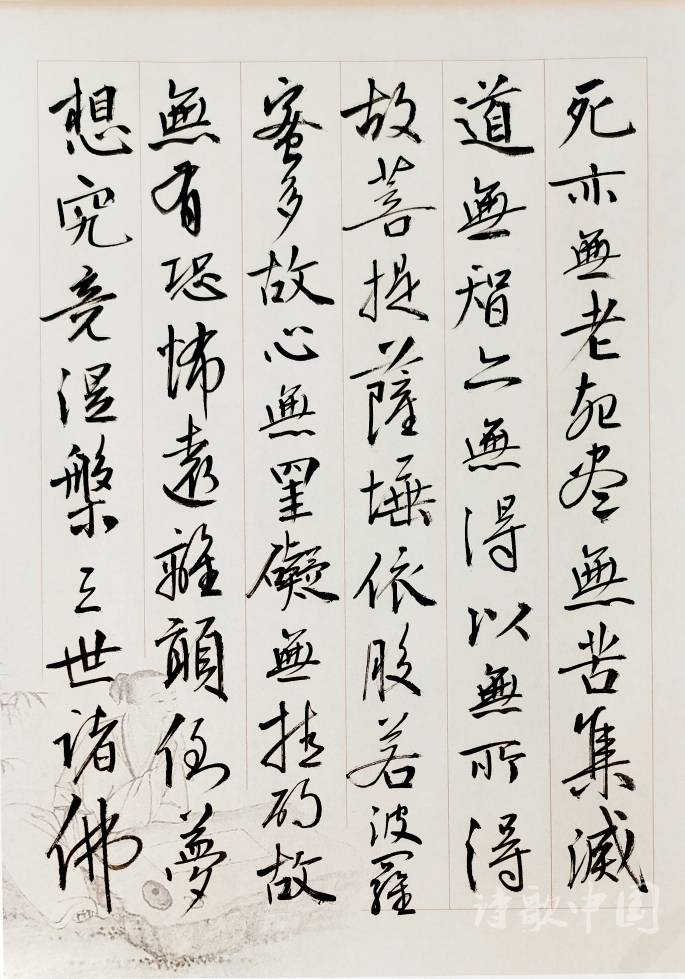 死亦無老死盡無苦集滅
道無智亦無得以無所得
故菩提薩埵依般若波羅
蜜多故心無罣礙無挂碍故
無有恐怖遠離顛倒夢
想究竟涅槃三世諸佛
诗歌中国